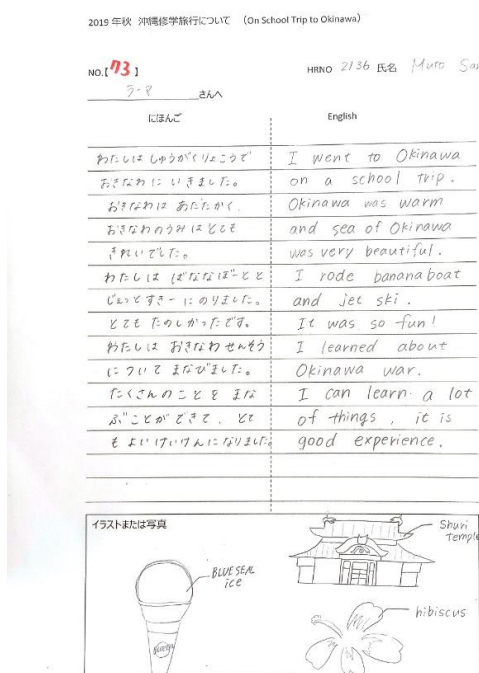 2019 年秋 沖縄修学旅行について （On School Trip to Okinawa）
NO.【73】
HRNO 2136 氏名 Muro
さんへ
にほんご
English
わたしは しゅうがくりょこうで
おきなわに いきました。
おきなわは あたたかく、
おきなわのうみは とても
きれいでした。
わたしは ばななぼーとと
じぇっとすきーにのりました。
とても たのしかったです。
わたしは おきなわせんそう
について まなびました。
たくさんのことを まな
ぶことができて、とて
もよいけいけんになりました。
I went to Okinawa
on a school trip.
Okinawa was warm
and sea of Okinawa
was very beautiful.
I rode bananaboat
and jet ski.
It was so fun!
I learned about
Okinawa war.
I can learn a lot
of things, it is
good experience.
イラストまたは写真
BLUE SEAL
ice
Shuri
temple
hibiscus